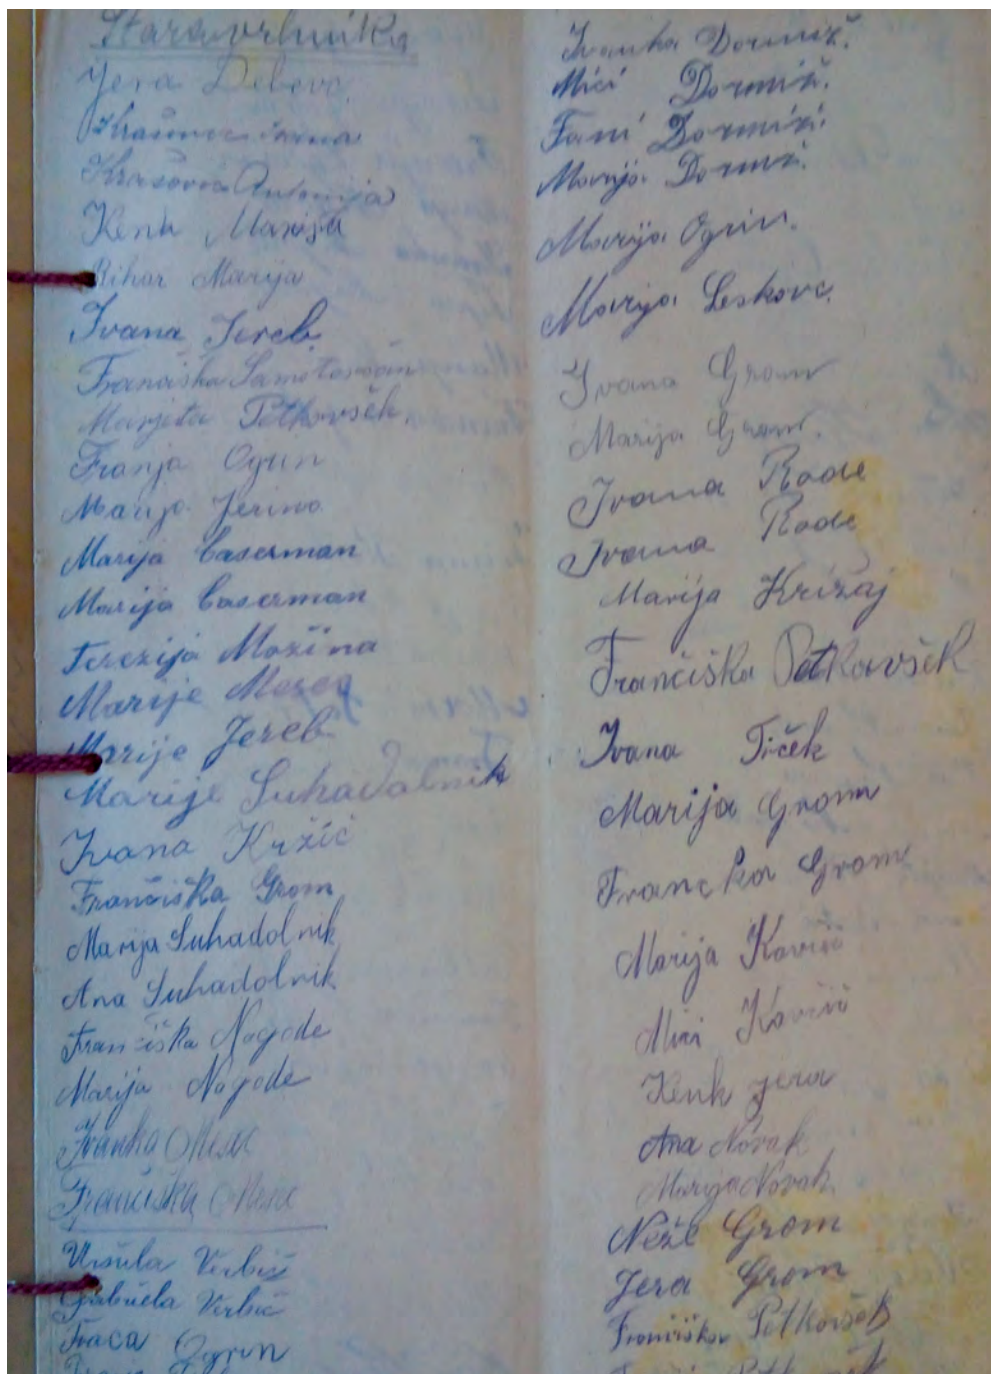 Staravrhnika
Jera Debevc
Krašovc Ivana
Krašovc Antonija
Kenk Marija
Rihar Marija
Ivana Jereb
Frančiška Samotorčan
Marjeta Petkovšek.
Franja Ogrin
Marija Jerina
Marija Caserman
Marija Caserman
Terezija Možina
Marije Mesec
Marije Jereb
Marije Suhadalnik
Ivana Kržič
Frančiška Grom
Marija Suhadolnik
Ana Suhadolnik
Frančiška Nagode
Marija Nagode
Ivanka Mesec
Frančiška Mesec
Uršula Verbič
Gabriela Verbič
Fraca Ogrin
Ivanka Dormiš.
Mici Dormiš.
Fani Dormiš.
Marija Dormiš.
Marija Ogrin.
Marija Leskovc.
Ivana Grom
Marija Grom.
Ivana Rode
Ivana Rode
Marija Križaj
Frančiška Petkavšek
Ivana Tiček
Marija Grom
Francka Grom
Marija Kovčič
Mici Kovčič
Kenk Jera
Ana Novak
Marija Novak
Neže Grom
Jera Grom
Frančiška Petkovšek